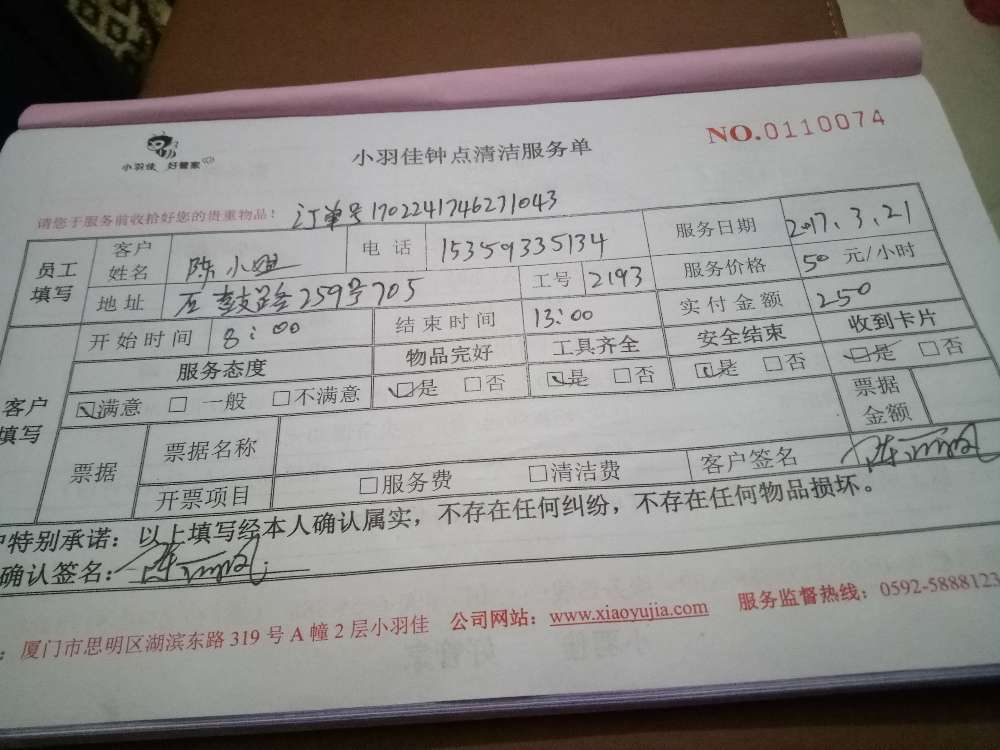 小羽佳 好管家
小羽佳钟点清洁服务单
NO.0110074
请您于服务前收拾好您的贵重物品!
订单号1702241746271043
员工填写 客户姓名 陈小姐 电话 15359335134 服务日期 2017.3.21
地址 鼓路259号705 工号 2193 服务价格 50 元/小时
开始时间 8:00 结束时间 13:00 实付金额 250
客户填写 服务态度 物品完好 工具齐全 安全结束 收到卡片
满意 一般 不满意 是 否 是 否 是 否 是 否
票据 票据名称 票据金额
开票项目 服务费 清洁费 客户签名
特别承诺：以上填写经本人确认属实，不存在任何纠纷，不存在任何物品损坏。
确认签名：
：厦门市思明区湖滨东路 319 号 A 幢 2 层小羽佳 公司网站：www.xiaoyujia.com 服务监督热线：0592-5888123